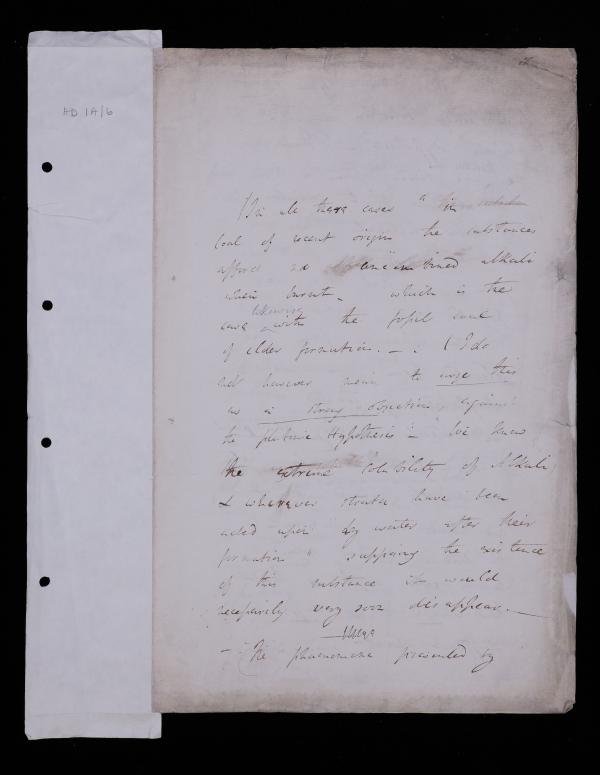 HD 1A/6
In all these cases in
Coal of recent origin the substances
afford no uncombined alkali
when burnt _ which is the
likewise
case with the fossil coal
of older formation. _ . ( I do
not however mean to urge this
as a strong objection, against
the plutonic Hypothesis" _ we know
the extreme solubility of Alkali,
& wherever strata have been
acted upon by water after their
formation supposing the existence
of this substance it would
necessarily very soon disappear. _
_ The phaenomena presented by